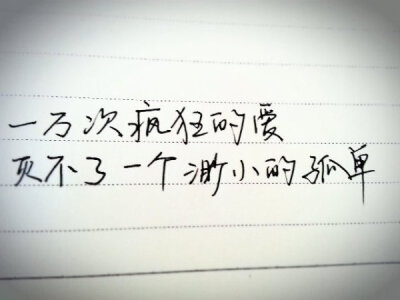 一万次疯狂的爱
灭不了一个渺小的孤单